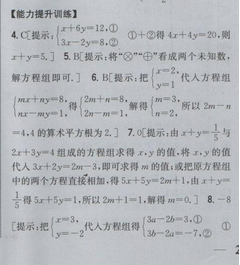 【能力提升训练】
4.C[提示:{x+6y=12,① 3x-2y=8,② ①+②得4x+4y=20,则
x+y=5.] 5.B[提示:将“⊗”“⊕”看成两个未知数,
解方程组即可.] 6.B[提示:把{x=2, y=1 代入方程组
{mx+ny=8, nx-my=1, 得{2m+n=8, 2n-m=1, 解得{m=3, n=2, 所以2m-n
=4,4的算术平方根为2.] 7.C[提示:由x+y=1/5与
2x+3y=4组成的方程组求得x,y的值,将x,y的值
代入3x+2y=2m-3,即可求得m的值;或把原方程组
中的两个方程直接相加,得5x+5y=2m+1,由x+y=
1/5得5x+5y=1,所以2m+1=1,解得m=0.] 8.-8
[提示:把{x=3, y=-2 代入方程组得{3a-2b=3,① 3b-2a=-7,②